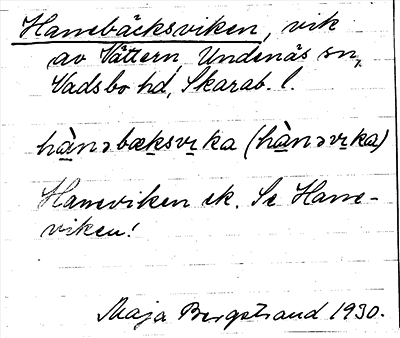 Hanebäcksviken, vik
av Vättern, Undenäs sn,
Vadsbo hd, Skarab. l.
hànəbæksvika (hànəvika)
Haneviken ek. Se Hane-
viken!
Maja Bergstrand 1930.